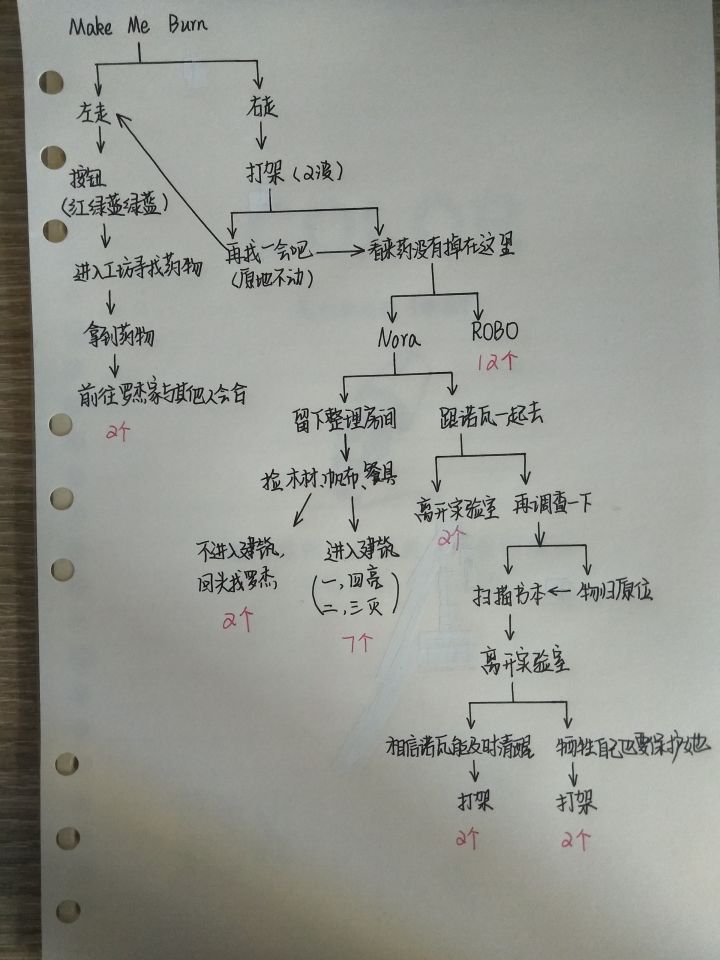 Make Me Burn
左走
右走
按钮
(红绿蓝绿蓝)
打架 (2波)
进入工坊寻找药物
再找一会吧
(原地不动)
看来药没有掉在这里
拿到药物
Nora
ROBO
12个
前往罗杰家与其他人会合
2个
留下整理房间
跟诺瓦一起去
捡木材、帆布、餐具
离开实验室
2个
再调查一下
不进入建筑,
回头找罗杰
2个
进入建筑
(一,四亮
二,三灭)
7个
扫描书本
物归原位
离开实验室
相信诺瓦能及时清醒
牺牲自己也要保护她
打架
打架
2个
2个